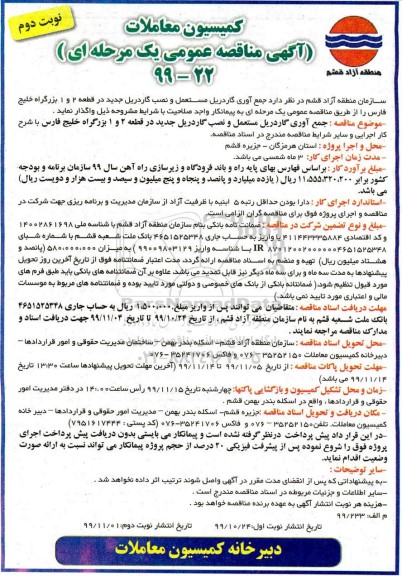 نوبت دوم
کمیسیون معاملات
(آگهی مناقصه عمومی یک مرحله ای)
۲۲ - ۹۹
منطقه آزاد قشم
سازمان منطقه آزاد قشم در نظر دارد جمع آوری گاردریل مستعمل و نصب گاردریل جدید در قطعه ۲ و ۱ بزرگراه خلیج
فارس را از طریق مناقصه عمومی یک مرحله ای به پیمانکار واجد صلاحیت با شرایط مشروحه ذیل واگذار نماید.
-موضوع مناقصه: جمع آوری گاردریل مستعمل و نصب گاردریل جدید در قطعه ۲ و ۱ بزرگراه خلیج فارس با شرح
کار اجرایی و سایر شرایط مناقصه مندرج در اسناد مناقصه.
-محل و اجرا پروژه: استان هرمزگان - جزیره قشم
-مدت زمان اجرای کار: ۳ ماه شمسی می باشد.
-مبلغ برآورد کار: براساس فهارس بهای پایه راه و باند فرودگاه و زیرسازی راه آهن سال ۹۹ سازمان برنامه و بودجه
کشور برابر ۱۱،۵۵۵،۳۲۰،۲۰۰ ریال (یازده میلیارد و پانصد و پنجاه و پنج میلیون و سیصد و بیست هزار و دویست ریال)
می باشد.
-استاندارد اجرای کار: دارا بودن حداقل رتبه ۵ ابنیه با ظرفیت آزاد از سازمان مدیریت و برنامه ریزی جهت شرکت در
مناقصه و اجرای پروژه فوق برای مناقصه گران الزامی است.
-مبلغ و نوع تضمین شرکت در مناقصه: ضمانت نامه بانکی بنام سازمان منطقه آزاد قشم با شناسه ملی ۱۴۰۰۲۸۶۱۶۹۸
و کد اقتصادی ۴۱۱۴۴۳۳۳۵۸۸۴ یا واریز به حساب جاری ۴۶۵۱۵۲۵۳۴۸ بانک ملت شعبه قشم با شماره شبای
IR با شناسه واریز ۹۹۰۰۹۸۰۳۱۲۹ به میزان ۵۸۰،۰۰۰،۰۰۰ ریال (پانصد و
هشتاد میلیون ریال) تهیه و منضم به اسناد مناقصه ارائه گردد، مدت اعتبار ضمانتنامه فوق از تاریخ آخرین روز تحویل
پیشنهادها به مدت سه ماه و برای سه ماه دیگر نیز قابل تمدید می باشد. علاوه بر آن ضمانتنامه های بانکی باید طبق فرم های
مورد قبول تنظیم شود، (ضمانتنامه بانکی از بانک های خصوصی و دولتی مورد تایید بوده و ضمانتنامه های مربوط به موسسات
مالی و اعتباری مورد تایید نمی باشد).
-مهلت دریافت اسناد مناقصه: متقاضیان می توانند پس از واریز مبلغ ۱،۵۰۰،۰۰۰ ریال به حساب جاری ۴۶۵۱۵۲۵۳۴۸
بانک ملت شعبه قشم به نام سازمان منطقه آزاد قشم، از تاریخ ۹۹/۱۰/۲۴ تا تاریخ ۹۹/۱۱/۰۴ جهت دریافت اسناد و
مدارک مناقصه مراجعه نمایند.
-محل تحویل اسناد مناقصه: سازمان منطقه آزاد قشم- اسکله بندر بهمن - ساختمان مدیریت حقوقی و امور قراردادها -
دبیرخانه کمیسیون معاملات ۳۵۲۵۲۱۵۰-۰۷۶ و فاکس ۳۵۲۴۱۷۰۶-۰۷۶
-مهلت تحویل پاکات مناقصه: از تاریخ ۹۹/۱۱/۰۵ تا ۹۹/۱۱/۱۴ (آخرین مهلت تحویل پیشنهادها ساعت ۱۳:۳۰ تاریخ
۹۹/۱۱/۱۴ می باشد)
-زمان و محل تشکیل کمیسیون و بازگشایی پاکتها: چهارشنبه تاریخ ۹۹/۱۱/۱۵ رأس ساعت ۱۴:۰۰ در دفتر مدیریت امور
حقوقی و قراردادها، واقع در اسکله بندر بهمن قشم.
-مکان دریافت و تحویل اسناد مناقصه: جزیره قشم- اسکله بندر بهمن - مدیریت امور حقوقی و قراردادها - دبیر خانه
کمیسیون معاملات، تلفن ۳۵۲۵۲۱۵۰-۰۷۶ و فاکس ۳۵۲۴۱۷۰۶-۰۷۶ (کد پستی: ۷۹۵۱۶۱۷۴۴۴)
-در این قرار داد پیش پرداخت درنظر گرفته نشده است و پیمانکار می بایستی بدون دریافت پیش پرداخت اجرای
پروژه فوق را شروع نموده پس از پیشرفت فیزیکی ۲۰ درصد از حجم پروژه پیمانکار می تواند نسبت به ارائه صورت
وضعیت اقدام نماید.
-سایر توضیحات:
-به پیشنهاداتی که پس از انقضای مدت مقرر در آگهی واصل شوند ترتیب اثر داده نخواهد شد.
-سایر اطلاعات و جزئیات مربوطه در اسناد مناقصه مندرج است.
-هزینه هر نوبت انتشار آگهی به عهده برنده مناقصه خواهد بود.
م الف: ۹۹/۲۳۳
تاریخ انتشار نوبت اول: ۹۹/۱۰/۲۴ تاریخ انتشار نوبت دوم: ۹۹/۱۱/۰۱
دبیرخانه کمیسیون معاملات